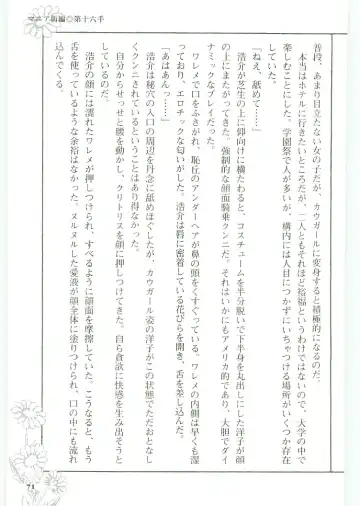 ◎第十六手
普段、あまり目立たない女の子だが、カウガールに変身すると積極的になるのだ。
本当はホテルに行きたいところだが、二人ともそれほど裕福というわけではないので、大学の中で
楽しむことにした。学園祭で人が多いが、構内には人目につかずにいちゃつける場所がいくつか存在
していた。
「ねえ、舐めて……」
浩介が芝生の上に仰向けに横たわると、コスチュームを半分脱いで下半身を丸出しにした洋子が顔
の上にまたがってきた。強制的な顔面騎乗クンニだ。それはいかにもアメリカ的であり、大胆でダイ
ナミックなプレイだった。
ワレメで口をふさがれ、恥丘のアンダーヘアが鼻の頭をくすぐっている。ワレメの内側は早くも湿
っており、エロチックな匂いがした。浩介は唇に密着している花びらを開き、舌を差し込んだ。
「あはあんっ……」
浩介は秘穴の入口の周辺を丹念に舐めほぐしたが、カウガール姿の洋子がこの状態でただおとなし
くクンニされているということはあり得なかった。
自分からせっせと腰を動かし、クリトリスを顔に押しつけてきた。自ら貪欲に快感を生み出そうと
しているのだ。
浩介の顔には濡れたワレメが押しつけられ、すべるように顔面を摩擦していた。こうなると、もう
舌を使っているような余裕はなかった。ヌルヌルした愛液が顔全体に塗りつけられ、口の中にも流れ
込んでくる。
71